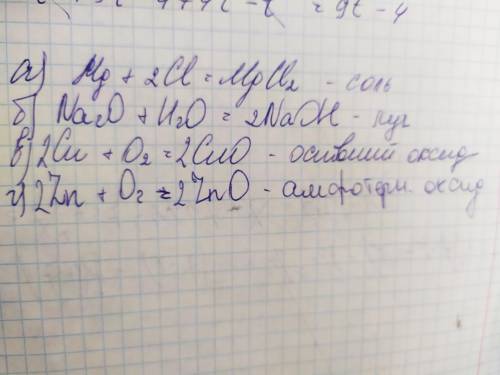 = 9t - 4
а) Mg + 2Cl = MgCl2 - соль
б) Na2O + H2O = 2NaOH - луг
в) 2Cu + O2 = 2CuO - осн&#8203;овний оксид
г) 2Zn + O2 = 2ZnO - амфотерн. оксид